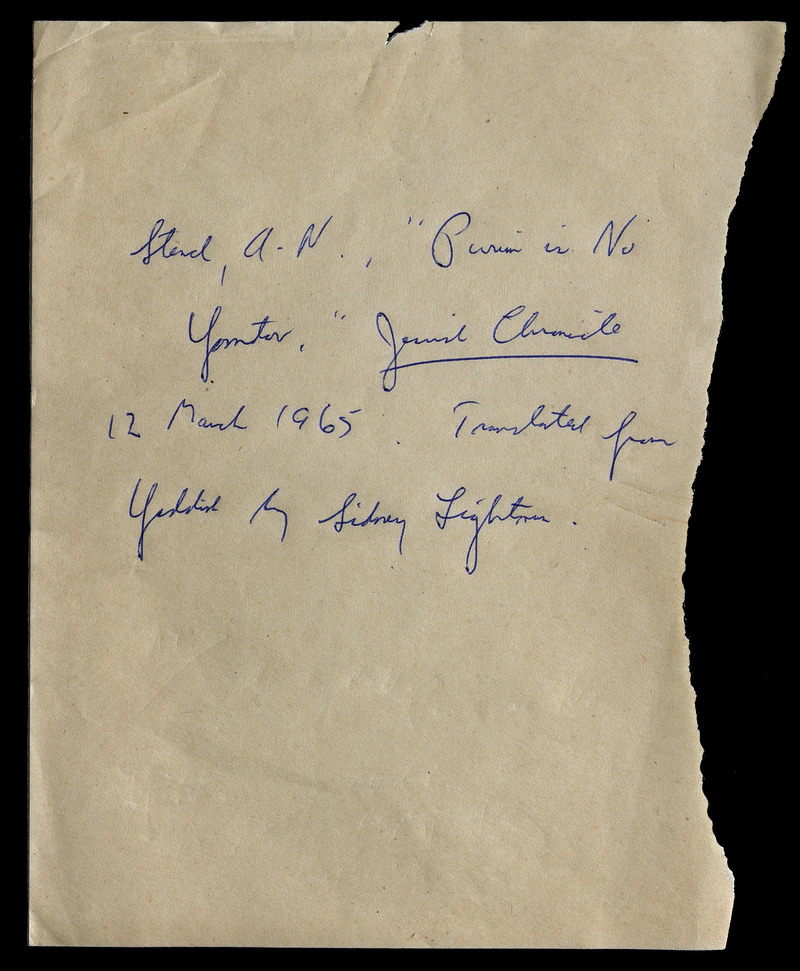 Stencl, A.N., "Purim is No
Yomtov," Jewish Chronicle
12 March 1965. Translated from
Yiddish by Sidney Lightman.